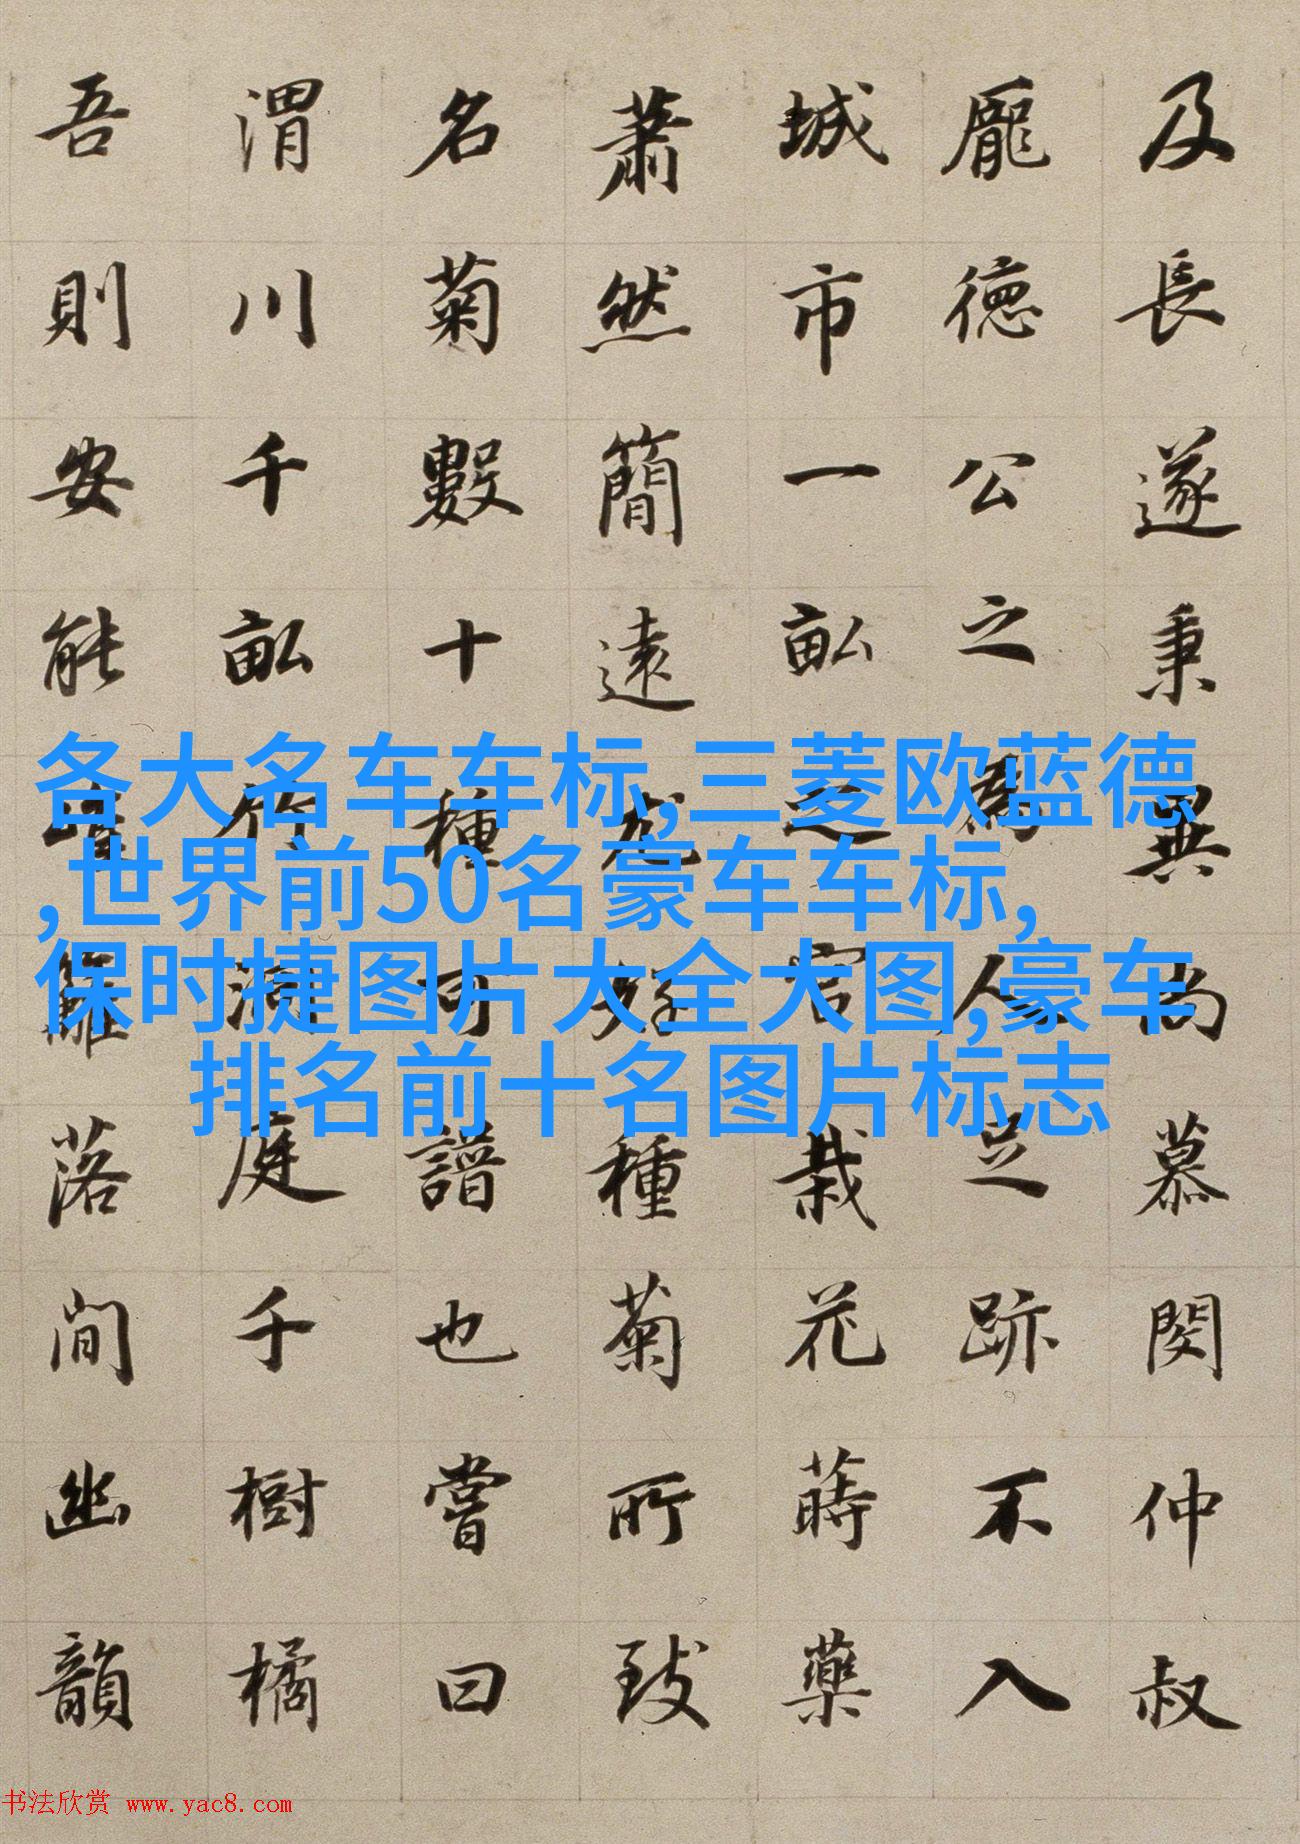 及長遂秉異尚慕閔仲叔
龐德公之為人足跡不入
城市一畝之宮栽花蒔藥
蕭然簡遠尤好種菊所致
名菊數十種可譜也嘗曰
渭川千畝竹洞庭千樹橘
吾則安能唯籬落間幽韻
各大名车车标,三菱欧蓝德
,世界前50名豪车车标,
保时捷图片大全大图,豪车
排名前十名图片标志
书法欣赏 www.yac8.com